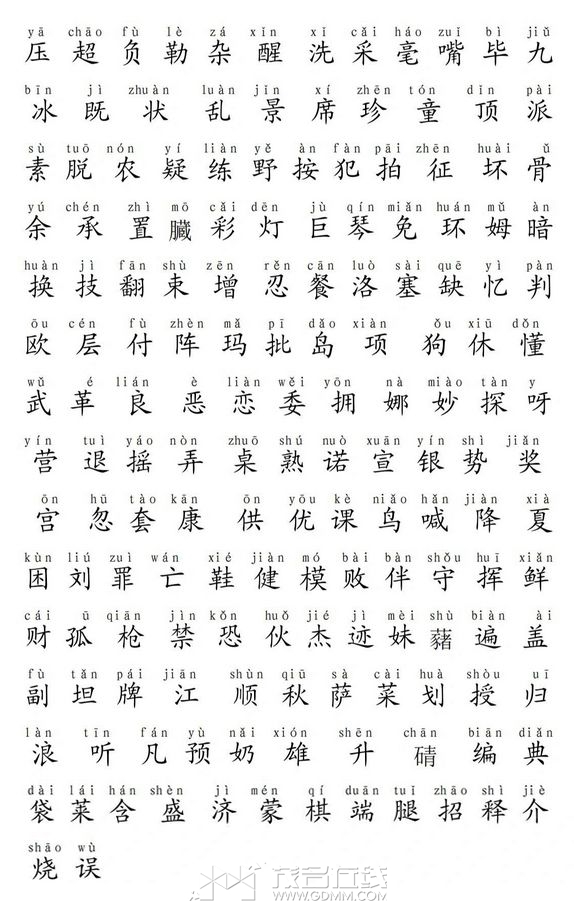 yā chāo fù lè zá xǐn xǐ cǎi háo zuǐ bì jiǔ
压 超 负 勒 杂 醒 洗 采 毫 嘴 毕 九
bīn jì zhuàn luàn jǐn xí zhēn tón dǐn pài
冰 既 状 乱 景 席 珍 童 顶 派
sù tuō nón yí liàn yě àn fàn pāi zhēn huài ǔ
素 脱 农 疑 练 野 按 犯 拍 征 坏 骨
yú chén zhì mō cǎi dēn jù qín miǎn huán mǔ àn
余 承 置 臓 彩 灯 巨 琴 免 环 姆 暗
huàn jì fān shù zēn rěn cān luò sài quē yì pàn
换 技 翻 束 增 忍 餐 洛 塞 缺 忆 判
ōu cén fù zhèn mǎ pī dǎo xiàn ǒu xiū dǒn
欧 层 付 阵 玛 批 岛 项 狗 休 懂
wǔ é lián è liàn wěi yōn nà miào tàn y
武 革 良 恶 恋 委 拥 娜 妙 探 呀
yín tuì yáo nòn zhuō shú nuò xuān yín shì jiǎn
营 退 摇 弄 桌 熟 诺 宣 银 势 奖
ōn hū tào kān ōn yōu kè niǎo hǎn jiàn xià
宫 忽 套 康 供 优 课 鸟 喊 降 夏
kùn liú zuì wán xié jiàn mó bài bàn shǒu huī xiǎn
困 刘 罪 亡 鞋 健 模 败 伴 守 挥 鲜
cái ū qiān jìn kǒn huǒ jié jì mèi shù biàn ài
财 孤 枪 禁 恐 伙 杰 迹 妹 藸 遍 盖
fù tǎn pái jiān shùn qiū sà cài huà shòu uī
副 坦 牌 江 顺 秋 萨 菜 划 授 归
làn tīn fán yù nǎi xión shēn chān biān diǎn
浪 听 凡 预 奶 雄 升 碃 编 典
dài lái hán shèn jì mén qí duān tuǐ zhāo shì jiè
袋 莱 含 盛 济 蒙 棋 端 腿 招 释 介
shāo wù
烧 误
茂名在线
WWW.GDMM.COM